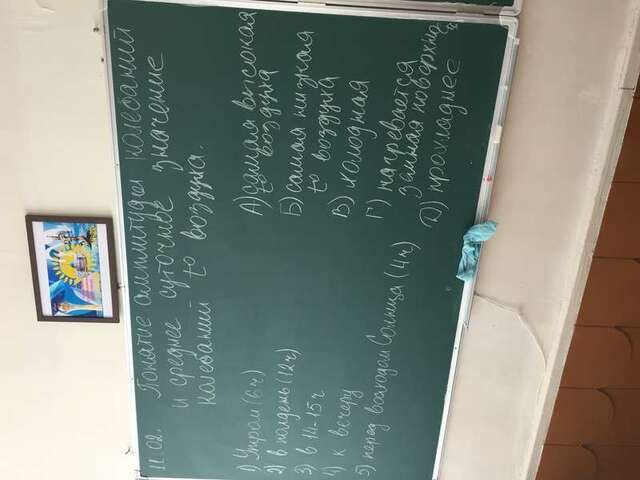 11.02. Понятие амплитуды колебаний
и среднее суточное значение
колебаний to воздуха.
1) Утром (6ч)
2) в полдень (12ч)
3) в 14-15ч
4) к вечеру
5) перед восходом Солнца (4ч)
А) самая высокая
to воздуха
Б) самая низкая
to воздуха
В) холодная
Г) нагревается
земная поверхн.
Д) прохладнее